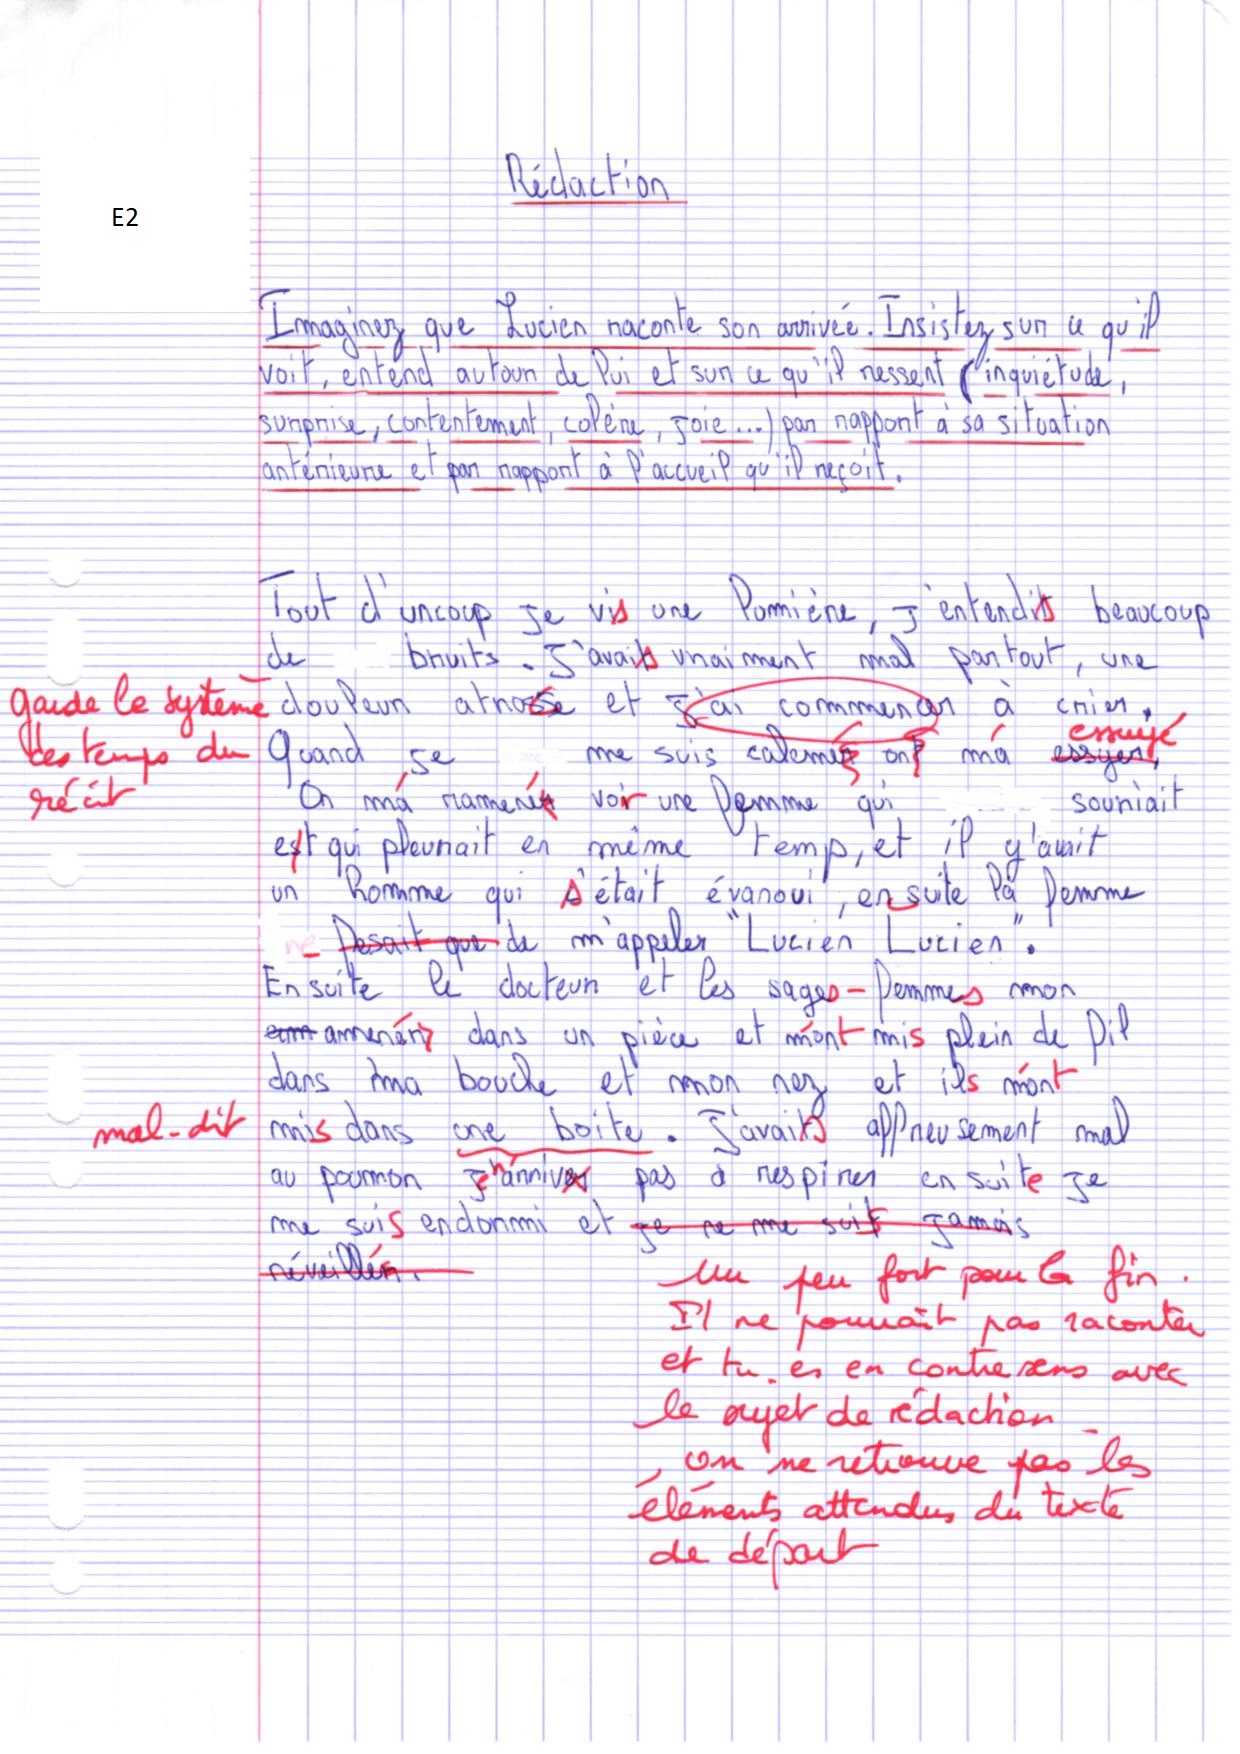 Rédaction
E2
Imaginez que Lucien raconte son arrivée. Insistez sur ce qu'il
voit, entend autour de lui et sur ce qu'il ressent (inquiétude,
surprise, contentement, colère, joie...) par rapport à sa situation
antérieure et par rapport à l'accueil qu'il reçoit.
Tout d'uncoup je vis une lumière, j'entendis beaucoup
de bruits. J'avais vraiment mal partout, une
garde le système douleur atroce et j'ai commencer à crier,
des temps du Quand je me suis calemer on m'a essuyé essyer,
récit On m'a ramener voir une femme qui souriait
et qui pleurait en même temp, et il y'avait
un homme qui s'était évanoui, ensuite la femme
ne fesait que de m'appeler "Lucien Lucien".
Ensuite le docteur et les sages-femmes mon
ammenér dans un pièce et m'ont mis plein de fil
dans ma bouche et mon nez et ils m'ont
mal-dit mis dans une boite. J'avais affreusement mal
au poumon je n'arrive pas à respirer en suite je
me suis endormi et je ne me suis jamais
réveillér.
Un peu fort pour la fin.
Il ne pourrait pas raconter
et tu es en contresens avec
le sujet de rédaction
, on ne retrouve pas les
éléments attendus du texte
de départ